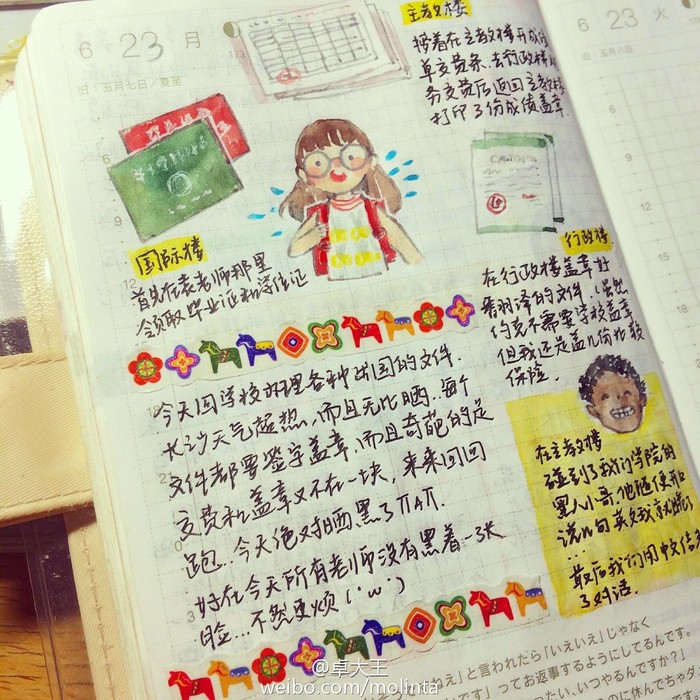 6 23 月
旧 五月七日/夏至
173
6 23 火
旧 五月八日
主教楼
接着在主教楼开成绩
单交费条,去行政楼财
务交费后返回主教楼
打印了份成绩盖章
国际楼
首先在袁老师那里
领取毕业证和学位证
行政楼
在行政楼盖章好
的文件(虽然
约克不需要学校盖章
但我还是盖几份比较
保险.
今天回学校办理各种出国的文件.
长沙天气超热,而且无比晒..每个
文件都要签字盖章,而且奇葩的是
交费和盖章又不在一块,来来回回
跑..今天绝对晒黑了TAT.
好在今天所有老师没有黑着一张
脸...不然更烦('ω')
在主教楼
碰到了我们学院的
黑人小哥,他随便和
说几句英文我就
...
最后我们用中文结束
了对话.
6
9
12
3
」と言われたら「いえいえ」じゃなく
」ってお返事するようにしてるんです。
たい、いつやるんですか?」
休んでちゃ
@卓大王
weibo.com/molinta